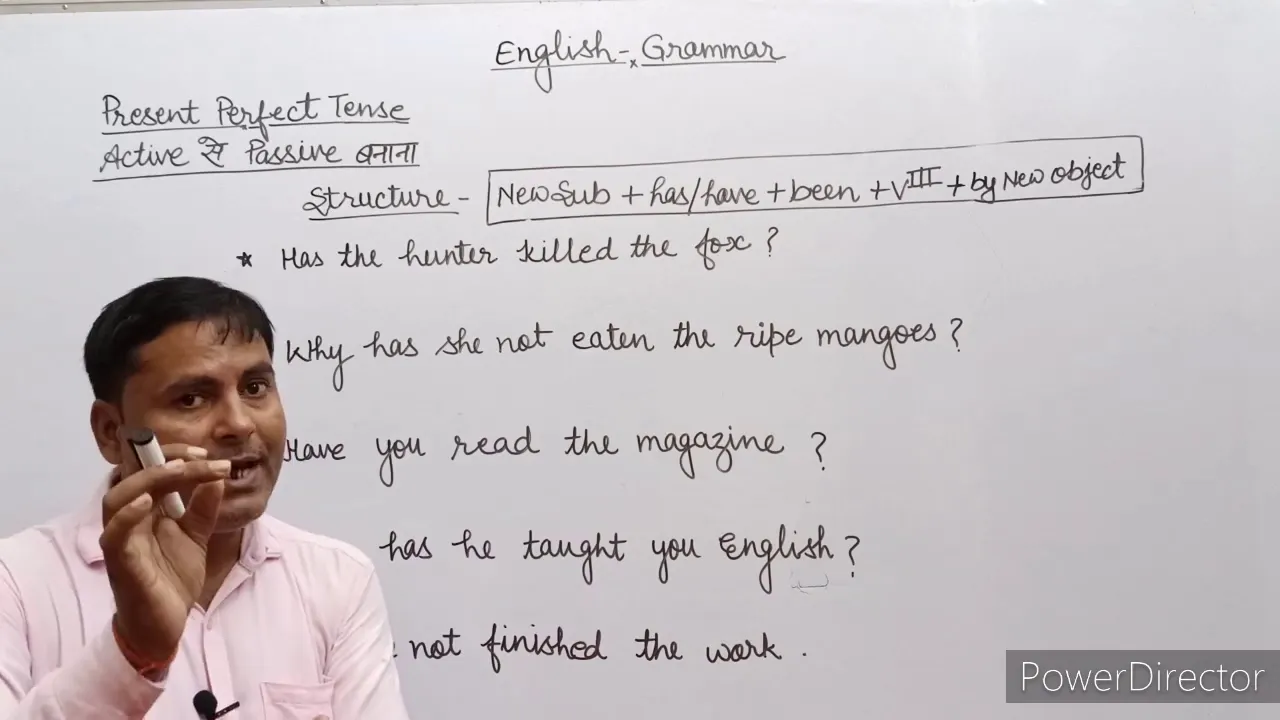 English - Grammar
Present Perfect Tense
Active से Passive बनाना
Structure - New Sub + has/have + been + VIII + by New object
* Has the hunter killed the fox ?
Why has she not eaten the ripe mangoes ?
Have you read the magazine ?
has he taught you English ?
not finished the work .
PowerDirector